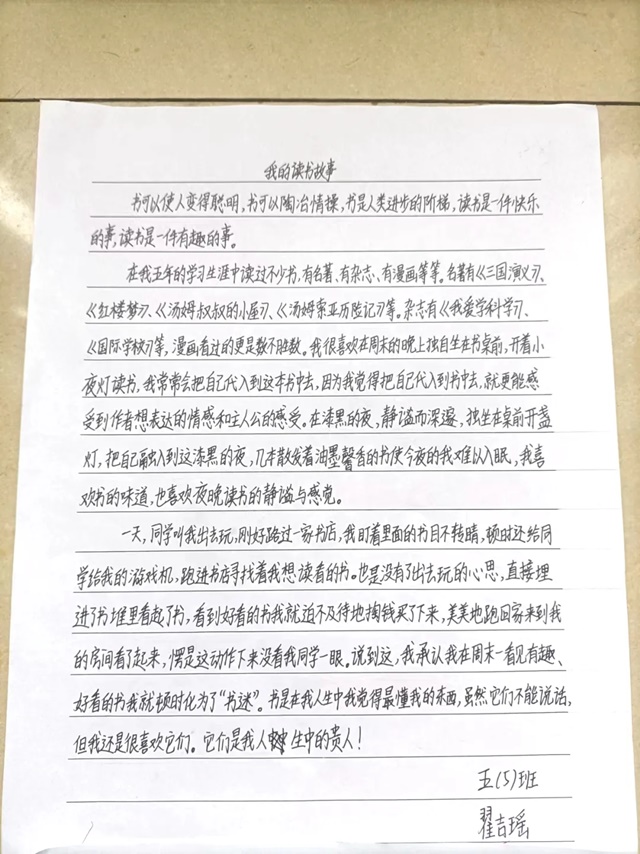 我的读书故事
书可以使人变得聪明，书可以陶冶情操，书是人类进步的阶梯，读书是一件快乐
的事，读书是一件有趣的事。
在我五年的学习生涯中读过不少书，有名著、有杂志、有漫画等等。名著有《三国演义》、
《红楼梦》、《汤姆叔叔的小屋》、《汤姆索亚历险记》等。杂志有《我爱学科学》、
《国际学校》等，漫画看过的更是数不胜数。我很喜欢在周末的晚上独自坐在书桌前，开着小
夜灯读书，我常常会把自己代入到这本书中去，因为我觉得把自己代入到书中去，就更能感
受到作者想表达的情感和主人公的感受。在漆黑的夜，静谧而深邃，独坐在桌前开盏
灯，把自己融入到这漆黑的夜，几本散发着油墨馨香的书使今夜的我难以入眠，我喜
欢书的味道，也喜欢夜晚读书的静谧与感觉。
一天，同学叫我出去玩，刚好路过一家书店，我盯着里面的书目不转睛，顿时还给同
学给我的游戏机，跑进书店寻找着我想读看的书。也是没有了出去玩的心思，直接埋
进了书堆里看起了书，看到好看的书我就迫不及待地掏钱买了下来，美美地跑回家来到我
的房间看了起来，愣是这动作下来没看我同学一眼。说到这，我承认我在周末一看见有趣、
好看的书我就顿时化为了“书迷”。书是在我人生中我觉得最懂我的东西，虽然它们不能说话，
但我还是很喜欢它们。它们是我人生中的贵人！
五(5)班
翟吉瑶